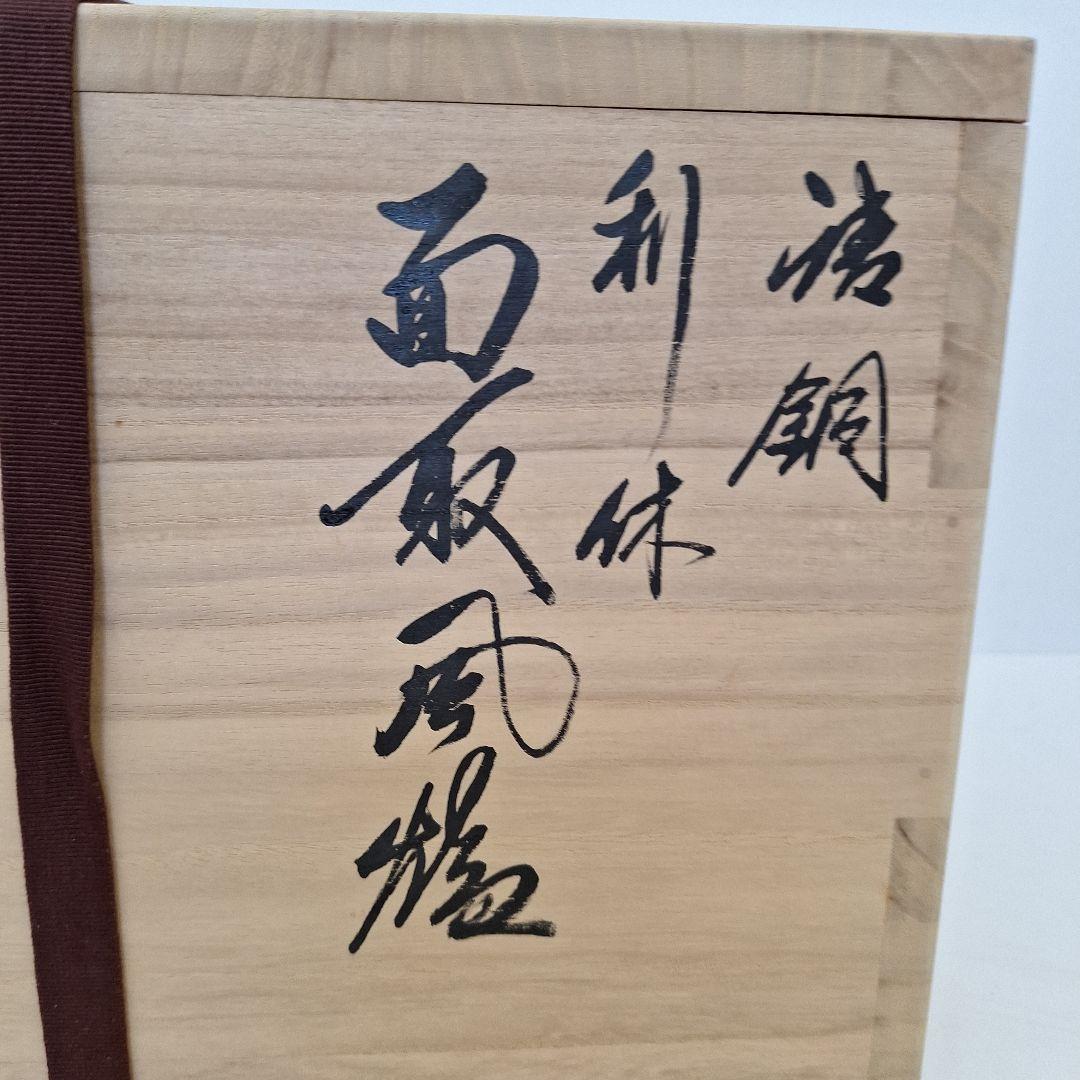 唐銅
利休
面取風爐